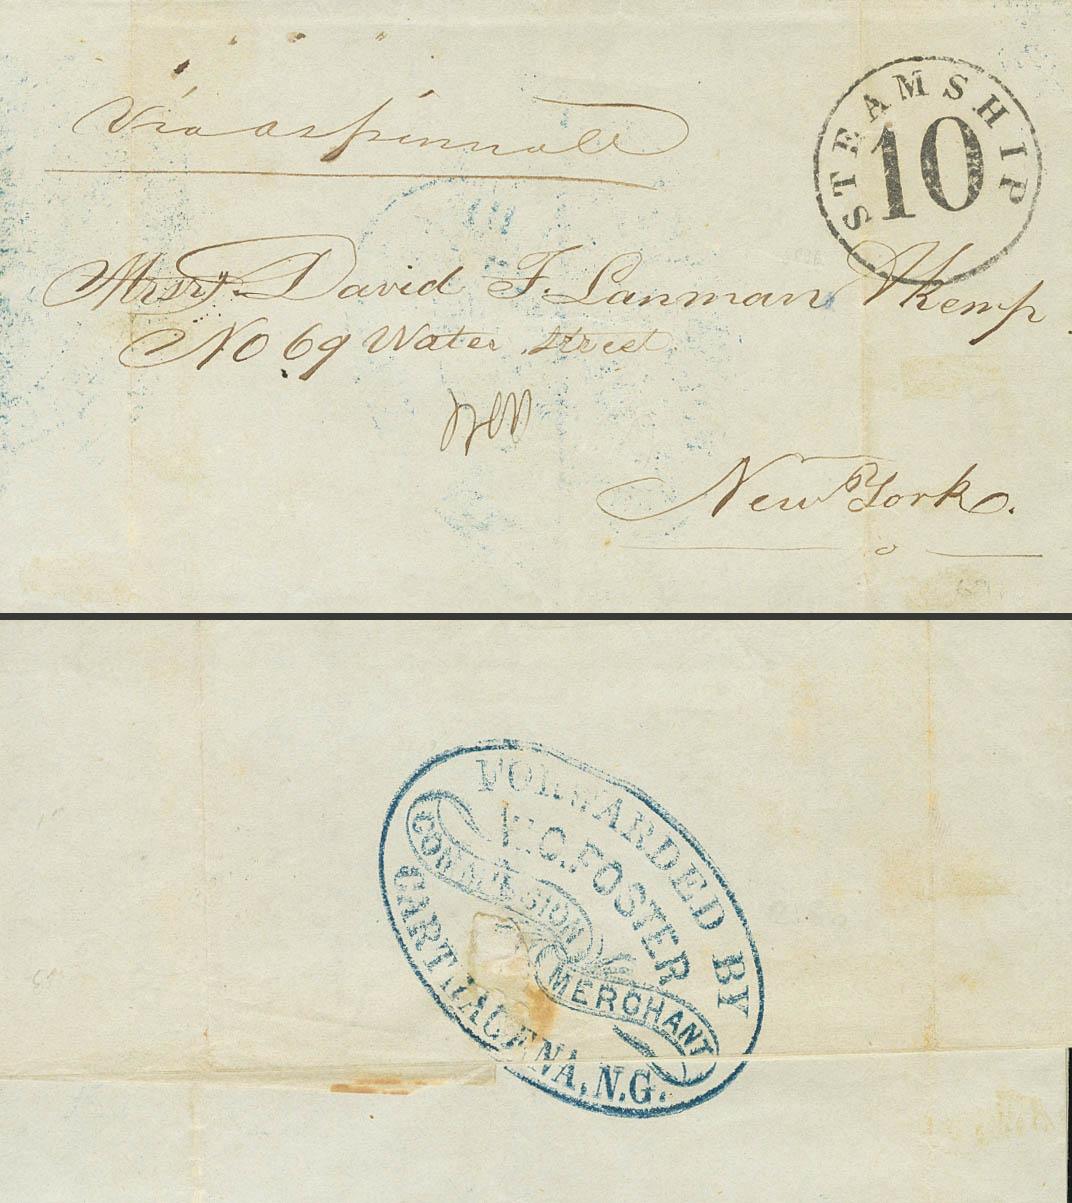 Via aspinwall
STEAMSHIP
10
Messrs. David F. Lanman & Kemp
No 69 Water Street
New York.
FORWARDED BY
W.C. FOSTER
COMMISSION MERCHANT
CARTHAGENA, N.G.